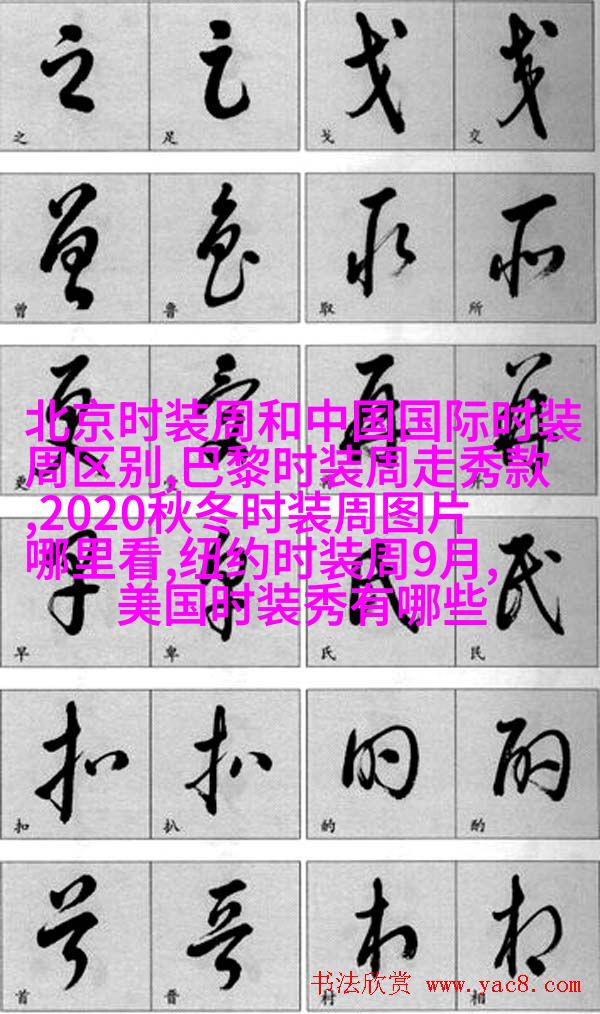 之 足 戈 交
曾 鲁 取 所
北京时装周和中国国际时装
周区别,巴黎时装周走秀款
更
,2020秋冬时装周图片
哪里看,纽约时装周9月,
美国时装秀有哪些
早 卑 氏 民
扣 扒 的 酌
首 晋 村 相
书法欣赏 www.yac8.com